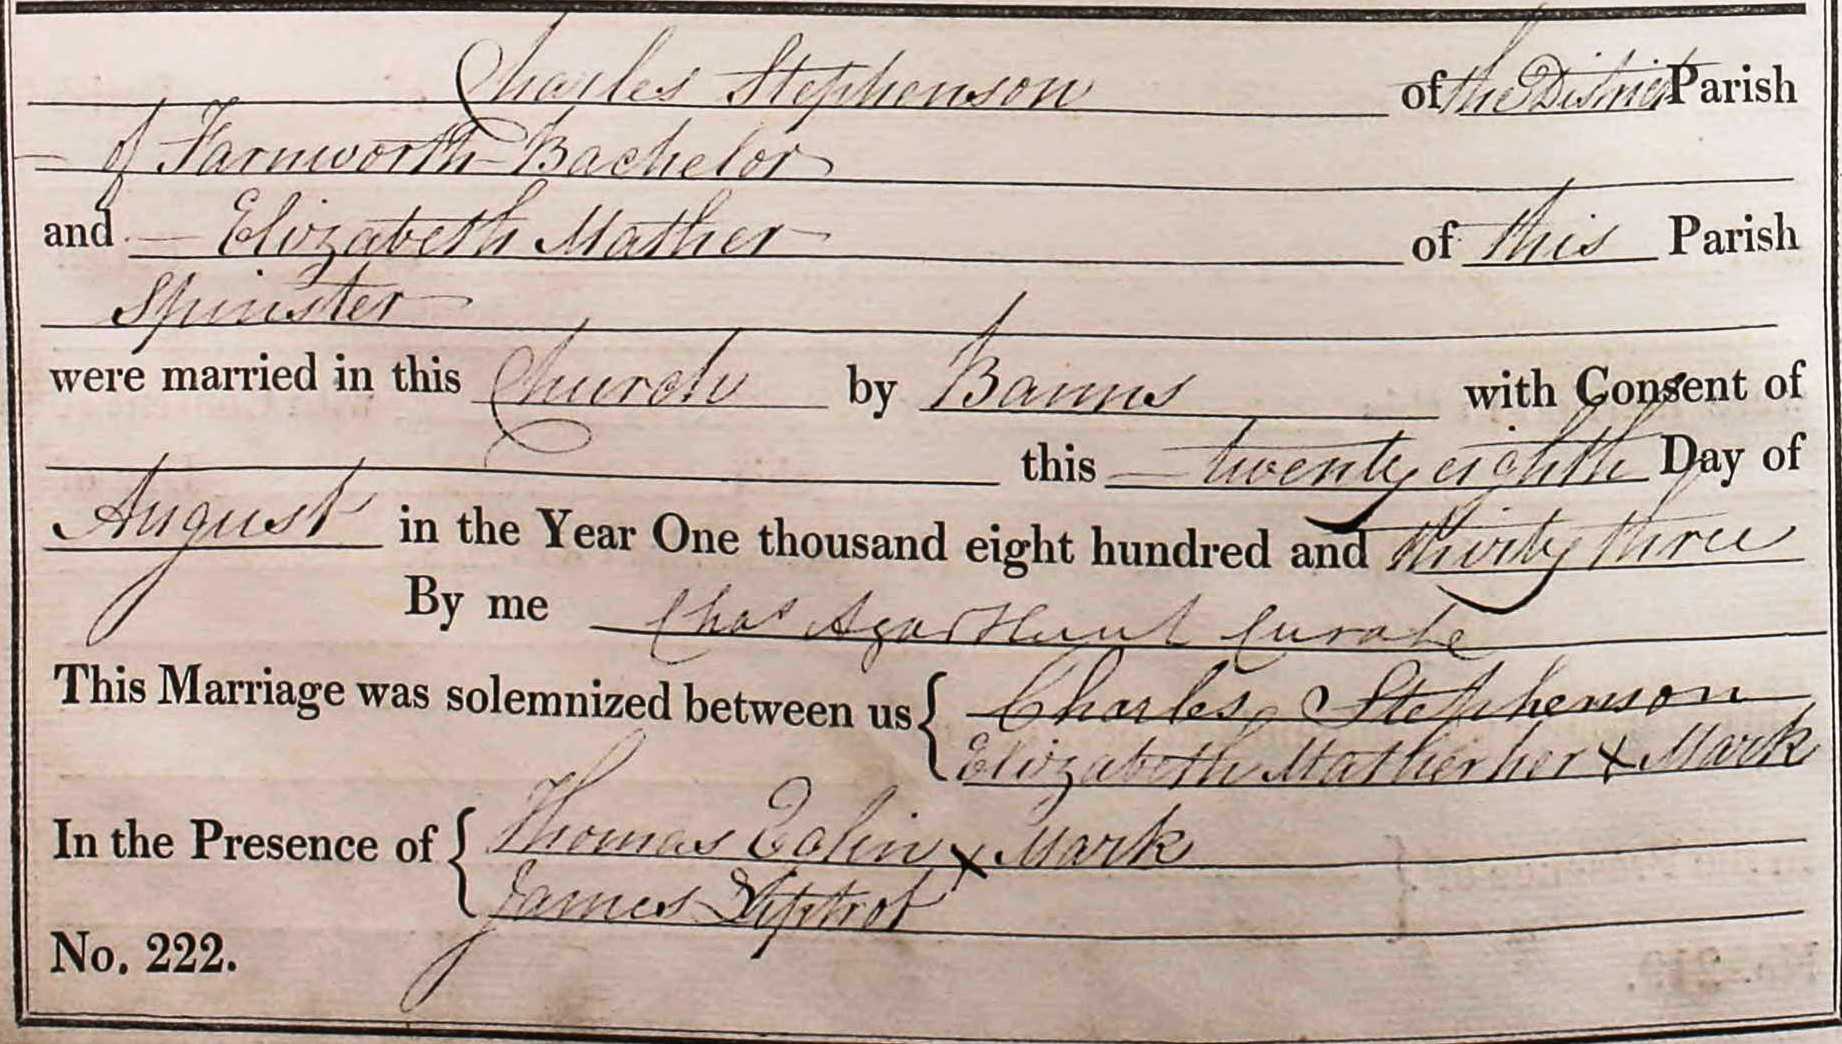 Charles Stephenson of the District Parish
of Farnworth Bachelor
and Elizabeth Mather of this Parish
Spinster
were married in this Church by Banns with Consent of
this twenty eighth Day of
August in the Year One thousand eight hundred and thirty three
By me Chas Agar Hunt Curate
This Marriage was solemnized between us { Charles Stephenson
Elizabeth Mather her X Mark
In the Presence of { Thomas X Mark
James
No. 222.